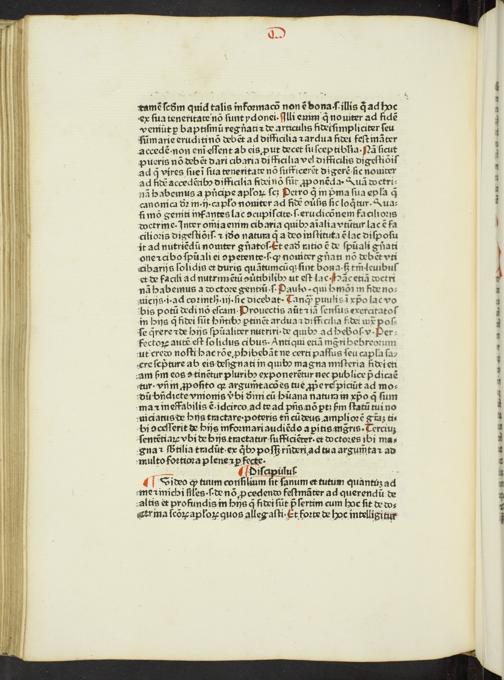 tamē scḋm quid talis informacō non ē bona .s. illis q̄ ad hoc
ex sua teneritate nō sunt ydonei. Illi enim q̄ noviter ad fidē
veniūt ꝑ baptismū regn̄ati ⁊ de articulis fidei simpliciter seu
sūmarie eruditi nō debēt ad difficilia ⁊ ardua fidei festināter
accedē. non eni essent ab eis, put decet susceptibilia. Nā sicut
pueris nō debēt dari cibaria difficilia vel difficilis digestiōis
ad q̄ vires sue ī sua teneritate nō sufficerēt digerē. sic noviter
ad fidē accedētibꝫ difficilia fidei nō sūt ꝓponēda. Quā doctri
nā habemus a pncipe apl'oꝝ scꝫ Petro q̄ in pma sua epl'a q̄
canonica dr̄ in .ij. capl'o noviter ad fidē
si mō geniti infantes lac ɔcupiscite .s. erudicōnem facilioris
doctrine. Inter omia enim cibaria quibꝫ aialia vtūtur lac ē fa
cilioris digestiōis. ⁊ iō natura q̄ a deo instituta ē lac disposu
it ad nutriēdū noviter gn̄atos. Et eadē ratio ē de spūali gn̄ati
one ⁊ cibo spūali ei ɔpetente .s. ꝙ noviter gn̄ati nō debēt vti
cibarijs solidis et duris quantūcūqꝫ sint bona. sꝫ tm̄ levibus
et de facili ad nutrimētū ɔūtibilibꝫ ut est lac. Hāc etiā doctri
nā habemus a doctore gentiū .s. Paulo. qui hmōi in fide no
vicijs .i. ad corinth .iij. sic dicebat. Tanqꝫ pvulis ī xp̄o lac vo
bis potū dedi nō escam. Provectis aūt ⁊ iā sensus exercitatos
in hijs q̄ fidei sūt hn̄tibꝫ ꝑtinēt ardua ⁊ difficilia fidei
se q̄rere ⁊ de hijs spūaliter nutriri. de quibꝫ ad hebꝰos .v. Per-
fectoꝝ autē est solidus cibus. Antiqui etiā mgr̄i hebreorum
ut credo nosti hac rōe, phibebāt ne certi passus seu capl'a sa-
cre scpture ab eis designati in quibꝫ magna misteria fidei eti
am fm eos ɔtinētur pluribꝫ exponerētur nec publice pdicarē
tur. vn̄ in, pposito qꝫ argumētacōes tue ꝓpꝛe respiciūt ad mo-
dū bn̄dicte vnionis vbi dini cū hūana natura in xp̄o q̄ sum
ma ⁊ ineffabilis ē. idcirco, ad te ad pn̄s nō pti̅ fm statū tui no
viciatus de hijs tractare. poteris tn̄ cū deus, ampliorē grām ti
bi ɔcesserit de hijs informari audiēdo a pitis mgris. Tercium
sententiaꝝ vbi de hijs tractatur sufficiēter. et doctores ibi ma-
gna ⁊ subtilia tradūt. ex qbꝫ possꝫ rn̄deri, ad tua argumēta ⁊ ad
multo fortiora plene ⁊ ꝑfecte.
Discipulus
Video ꝙ tuum consilium sit sanum et tutum quantūꝫ ad
me ⁊ michi siles .s. de nō, pcedendo festināter ad querendū de
altis et profundis in hijs q̄ fidei sūt psertim cum hoc sit de doc-
trina scōꝝ apl'oꝝ quos allegasti. Et forte de hoc intelligitur